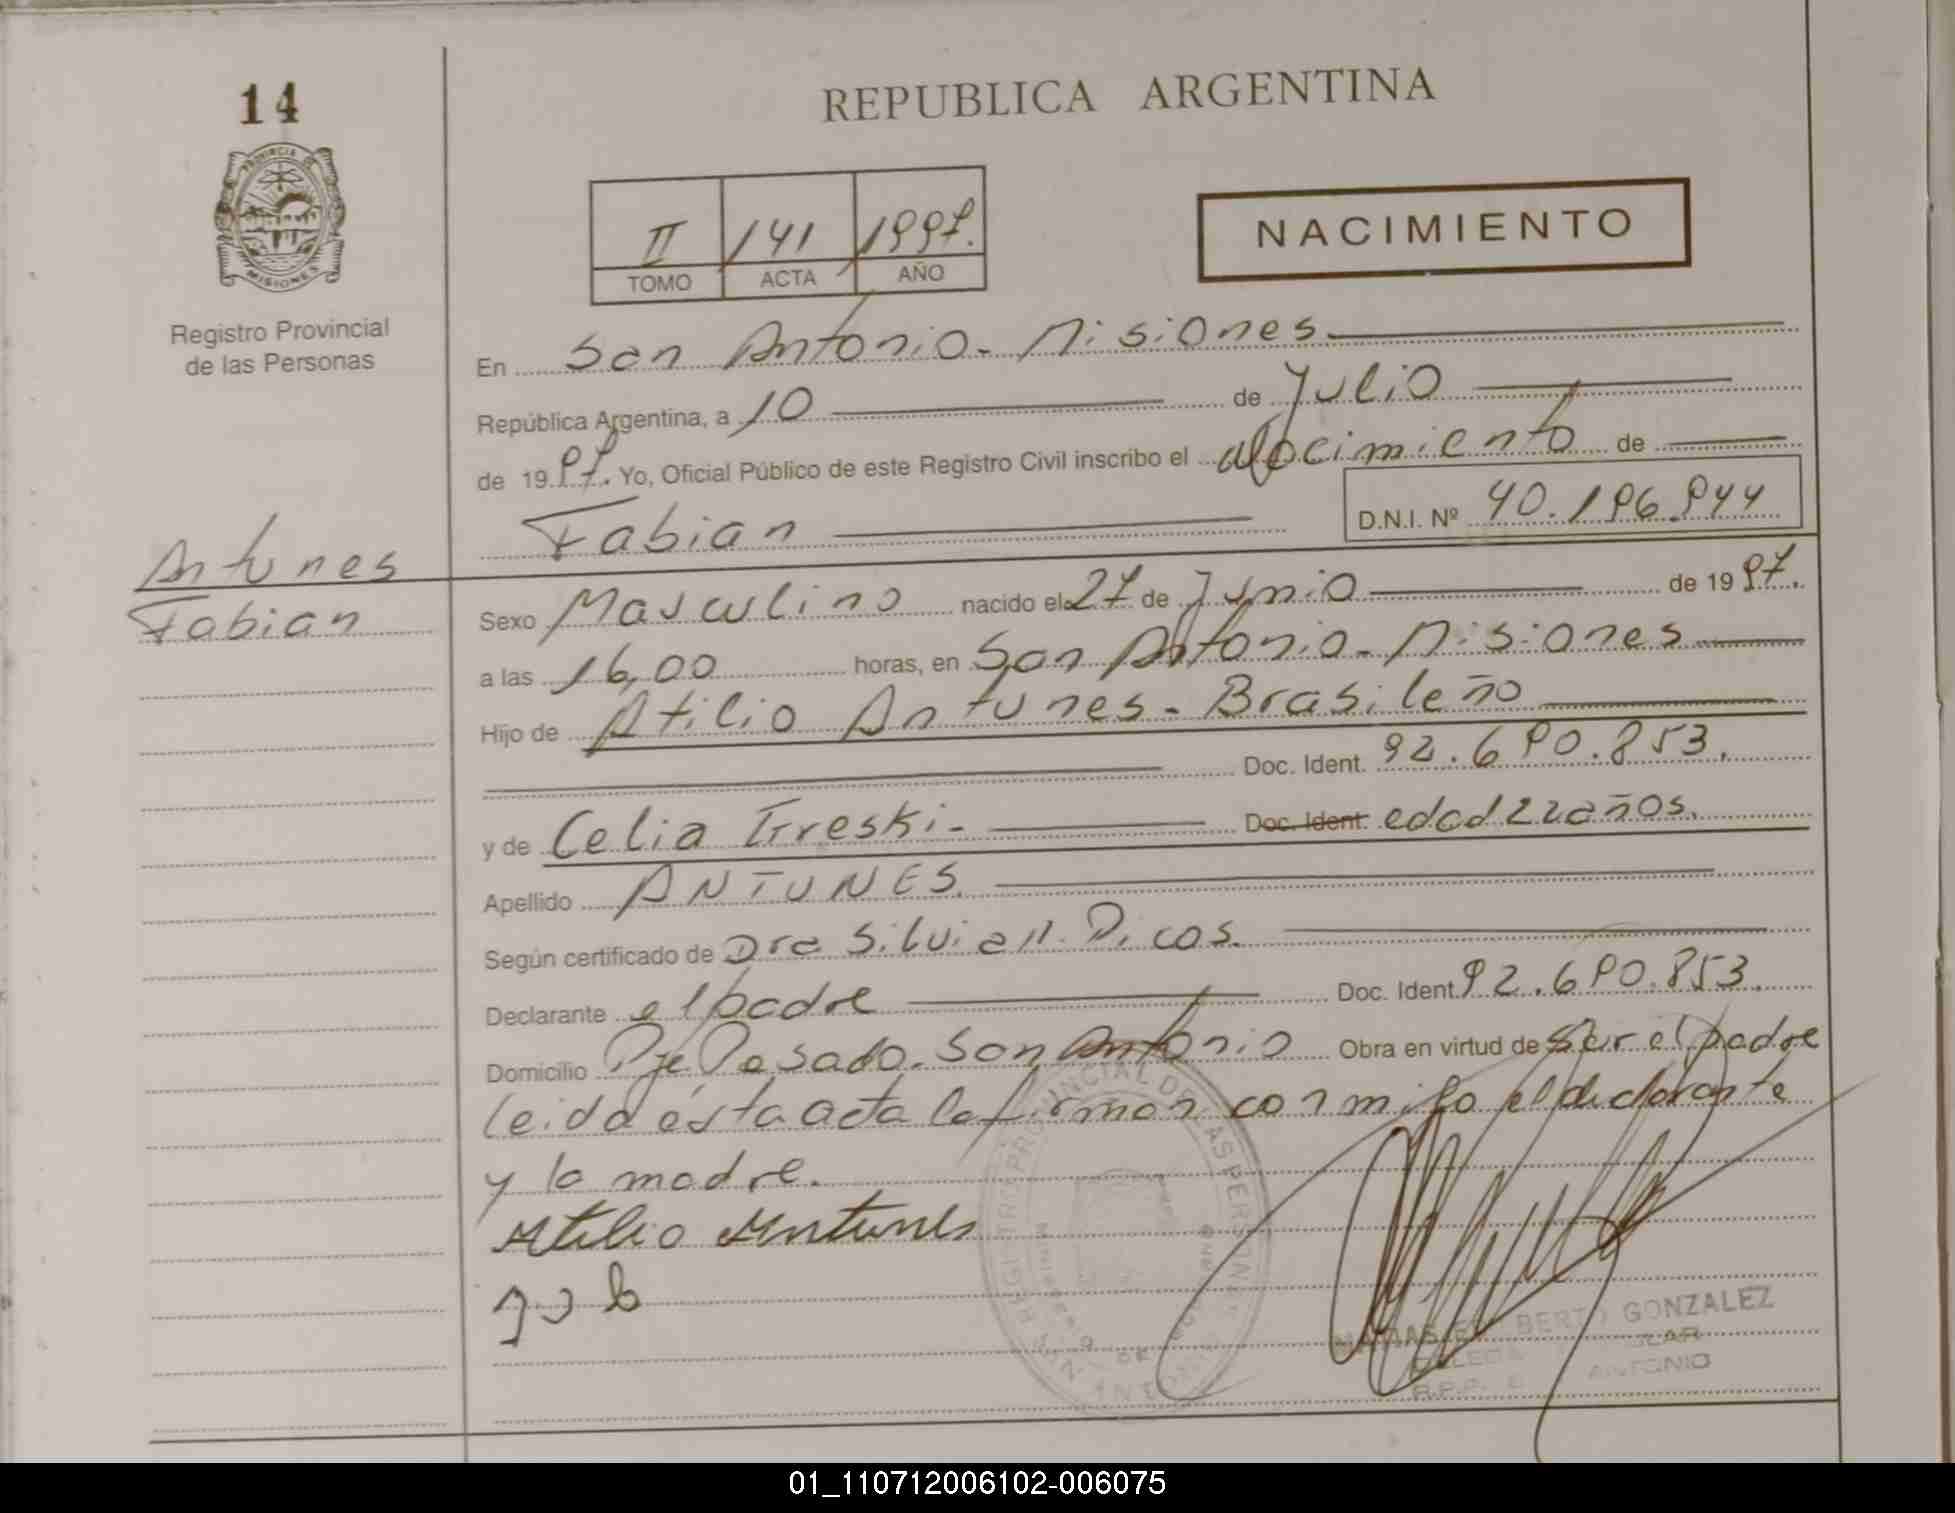 14
REPUBLICA ARGENTINA
PROVINCIA DE
MISIONES
II 141 1997.
TOMO ACTA AÑO
NACIMIENTO
Registro Provincial
de las Personas
En San Antonio - Misiones
República Argentina, a 10 de Julio
de 1997. Yo, Oficial Público de este Registro Civil inscribo el Nacimiento de
Fabian D.N.I. Nº 40.196.944
Antunes
Fabian
Sexo Masculino nacido el 27 de Junio de 1997.
a las 16,00 horas, en San Antonio - Misiones
Hijo de Atilio Antunes - Brasileño
Doc. Ident. 92.690.853.
y de Celia Treski - Doc. Ident. edad 22 años.
Apellido ANTUNES.
Según certificado de Dra Silvia
Declarante el padre Doc. Ident. 92.690.853.
Domicilio Pje Posado. San Antonio Obra en virtud de ser el padre
leida ésta acta la firman conmigo el declarante
y la madre.
Atilio Antunes
BERTO GONZALEZ
ANTONIO
01_110712006102-006075